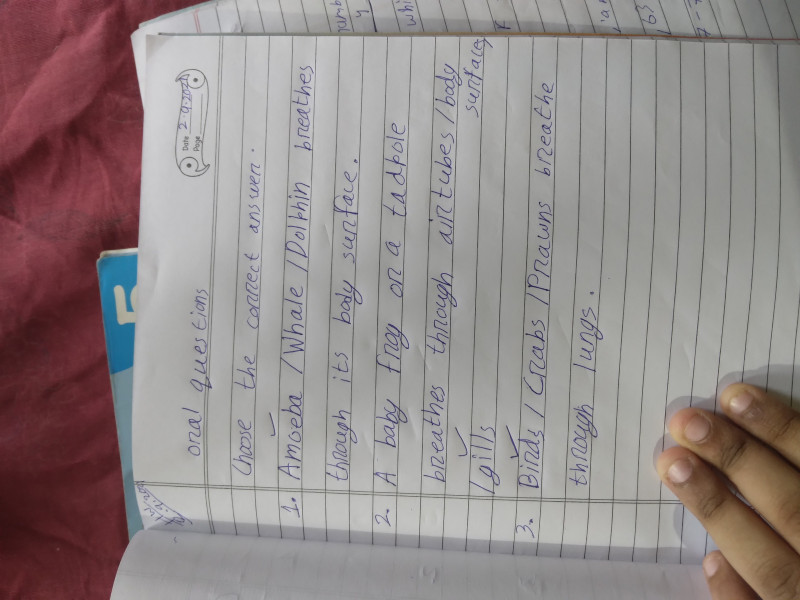 Date 2-9-202
Page
oral questions
Choose the correct answer.
1. Amoeba / Whale / Dolphin breathes
through its body surface.
2. A baby frog or a tadpole
breathes through airtubes / body
surface,
/ gills
3. Birds / Crabs / Prawns breathe
through lungs.